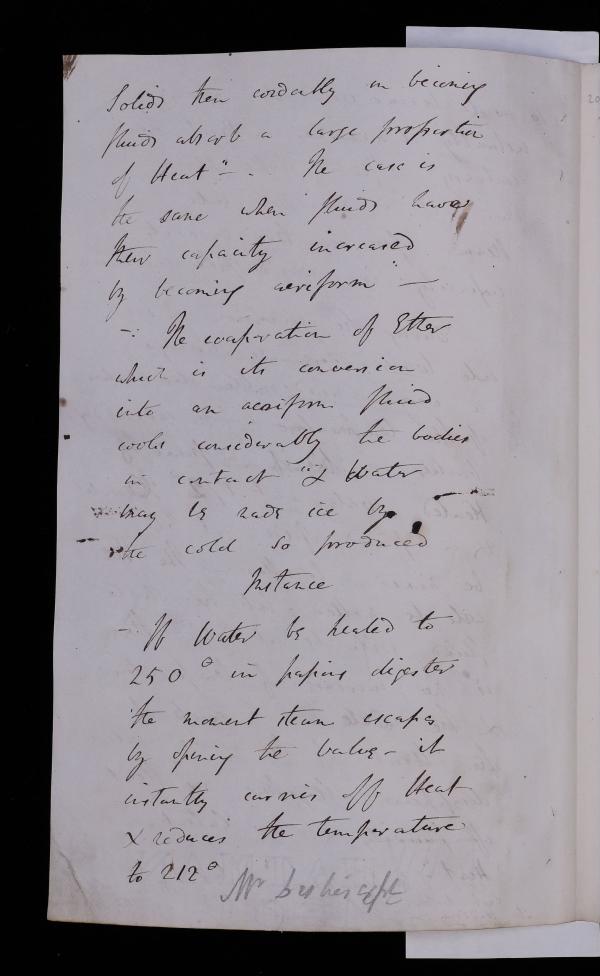 Solids then cordially in becoming
fluids absorb a large proportion
of Heat" – . The case is
the same when fluids have
their capacity increased
by becoming aeriform" —
–: The evaporation of Ether
which is its conversion
into an aeriform fluid
cools considerably the bodies
in contact "& Water
may be made ice by
the cold so produced
Instance
– If Water be heated to
250° in papins digester
the moment steam escapes
by opening the valve – it
instantly carries off Heat
& reduces the temperature
to 212°
Mr